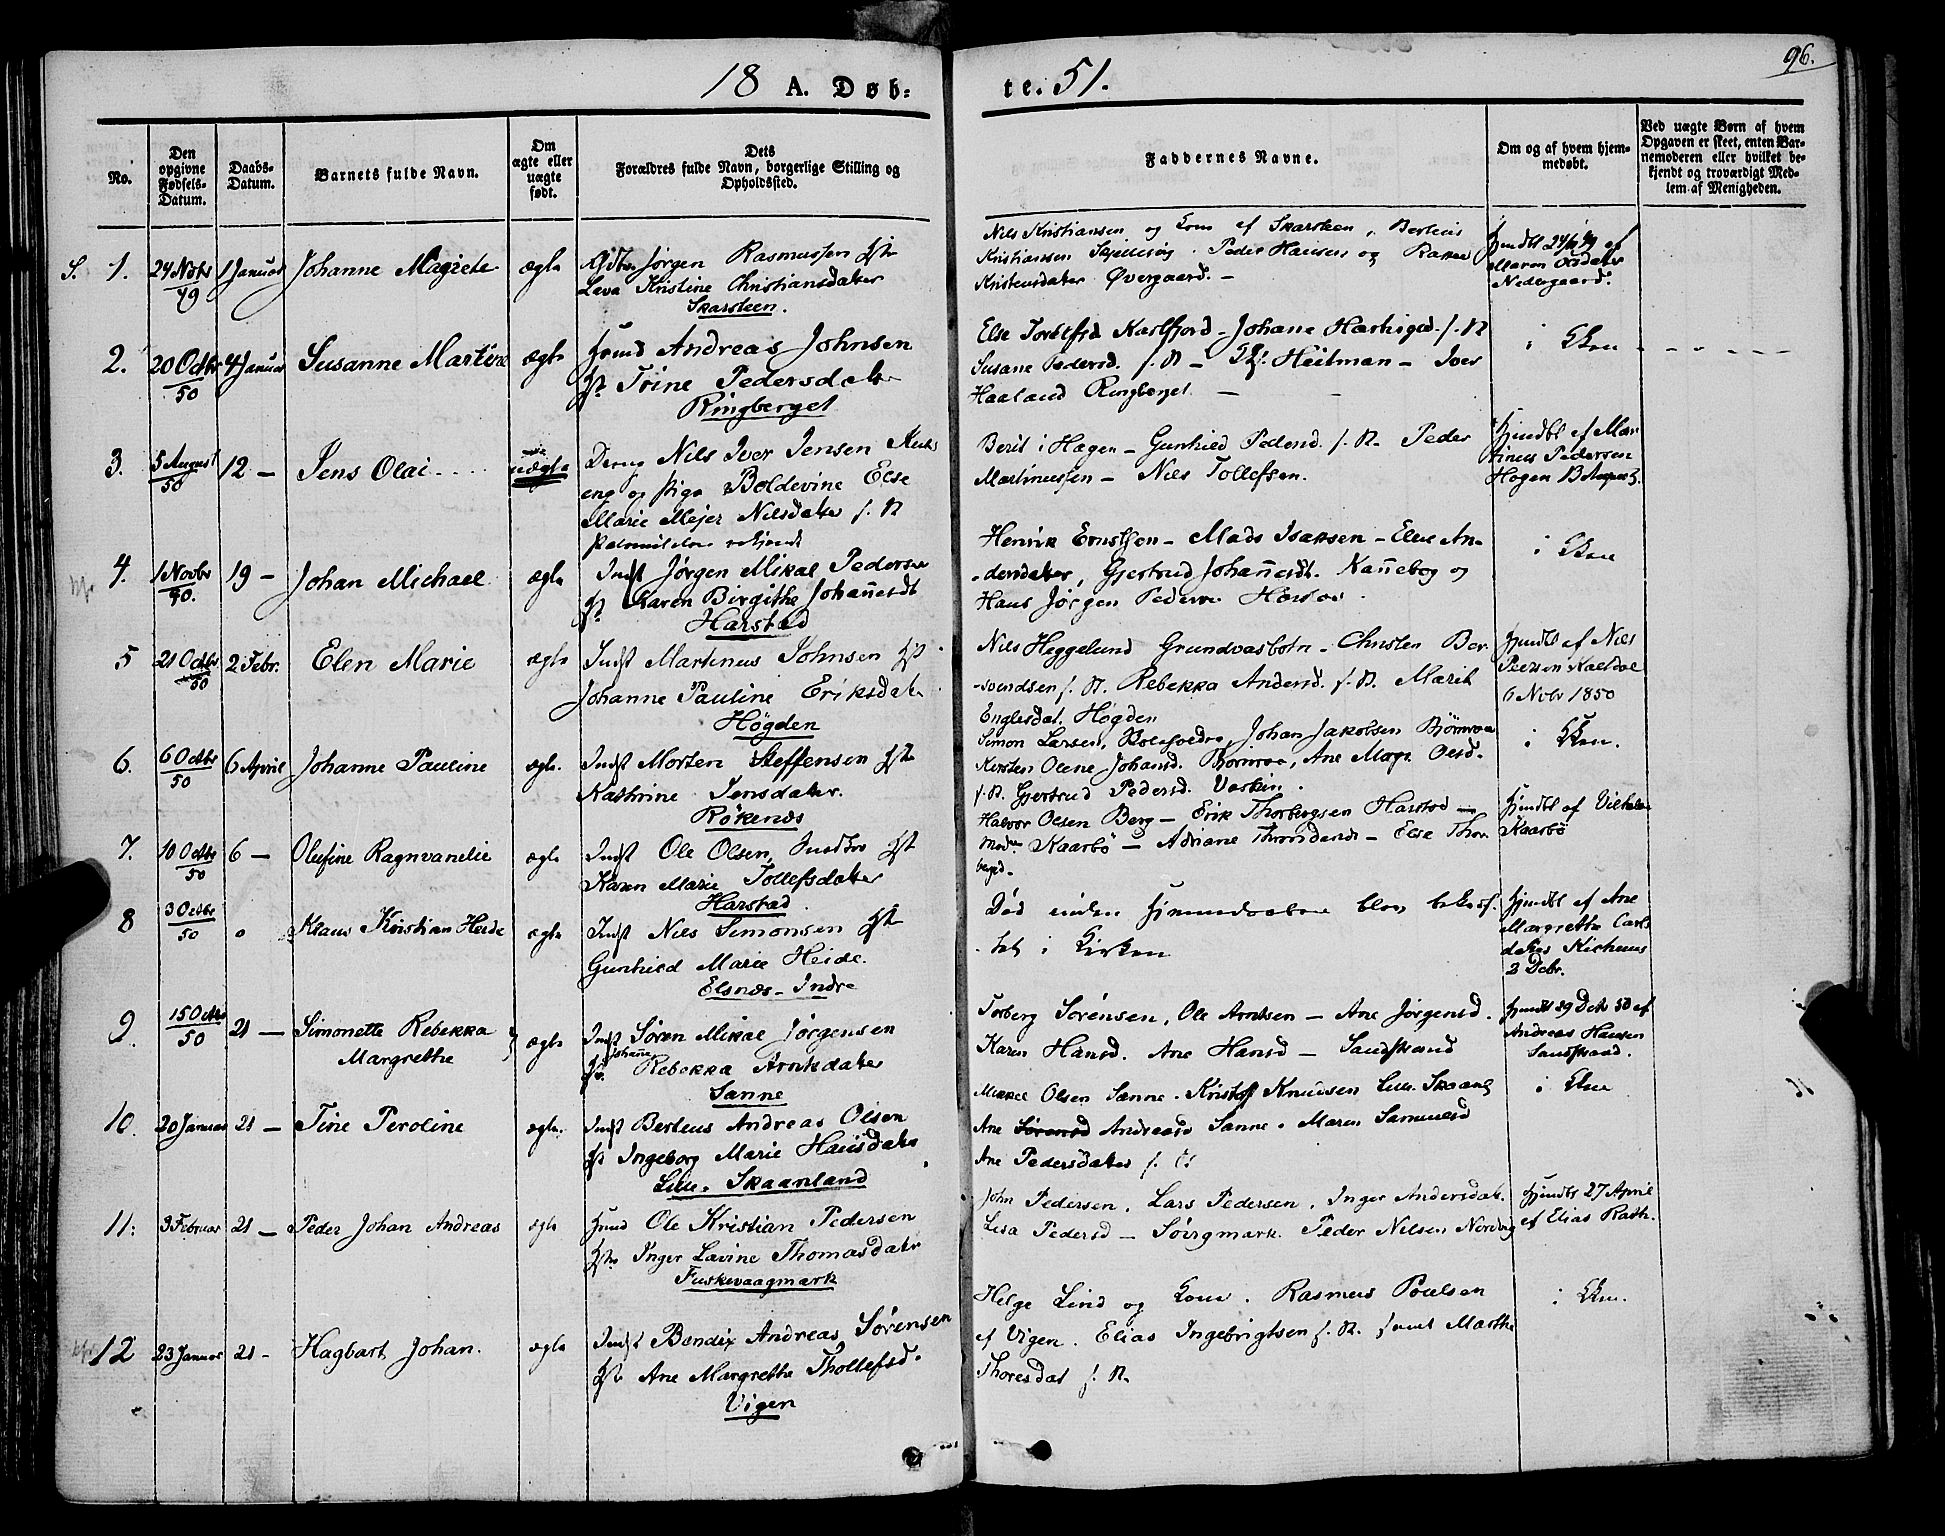 96.
18 A. Døb-
te. 51.
No.
Den opgivne Fødsels-Datum.
Daabs-Datum.
Barnets fulde Navn.
Om ægte eller uægte født.
Dets Forældres fulde Navn, borgerlige Stilling og Opholdssted.
Faddernes Navne.
Om og af hvem hjem-medøbt.
Ved uægte Børn af hvem Opgaven er skeet, enten Bar-nemoderen eller hvilket be-kjendt og troværdigt Med-lem af Menigheden.
S. 1. 24 Novbr 49 1 Januar Johanne Magrete ægte
Jørgen Rasmussen Hst
Lava Kristine Christiansdater
Skarsteen.
Nils Kristiansen og Kone af Skarsteen, Berteus
Kristiansen Peder Hansen og
Kristensdater Øvergaard. –
Hjmdbt 24/11 49 af
Maren Olsdater
Nedergaard.
2. 20 Octbr 50 4 Januar Susanne Martine ægte
Hmd Andreas Johnsen
Hst Trine Pedersdater
Ringberget
Else Kasfjord – Johane Hartvigsd. f. St
Susane Pedersd. f. St – Heitman – Iver
Haaland Ringberget. –
i Kken
3. 5 August 50 12 – Jens Olai uægte
Dreng Nils Iver Jensen
eng og Pige Boldevine Else
Marie Mejer Nilsdater f. St
Berit i Hagen – Gunhild Pedersd. f. St. Peder
Martinussen – Nils Tollefsen.
Hjmdbt af Mar
tinus Pedersen
Hagen 13 August
4. 1 Novbr 50. 19 – Johan Michael ægte
Indst Jørgen Mikal Pedersen
Hst Karen Birgithe Johannesdt
Harstad
Henrik Ernstsen – Mads Isaksen – Elen An-
-dersdater, Gjertrud Johannesdt. Kannebog og
Hans Jørgen Pedersen Harstad.
i Kken
5 21 Octbr 50 2 Febr. Elen Marie ægte
Indst Martinus Johnsen Hst
Johanne Pauline Eriksdater
Høgden
Nils Heggelund Grundvasbotn – Christen Ber
-svendsen f. St. Rebekka Andersd. f. St. Marit
Englesdat. Høgden
Hjmdbt af Nils
Peersen Kaldal
6 Nobr 1850
6. 6 Octbr 50 6 April Johanne Pauline ægte.
Indst Morten Steffensen Hst
Kathrine Jensdater.
Rökenæs
Simon Larsen, Johan Jakobsen Bjørnraa
Kirsten Olene Johansd. Bjørnraa, Ane Margr. Olsd.
f. St. Gjertrud Pedersd.
i Kken.
7. 10 Octbr 50 6 – Olufine Ragnvanelie ægte
Indst Ole Olsen, Hst
Karen Marie Tollefsdater
Harstad.
Halvor Olsen Berg – Erik Thorbergsen Harstad –
Kaarbö – Adriane – Else Thor
bergsd.
Hjmdbt af Vilhelm
Kaarbö
8 3 Octbr 50 0 Klaus Kristian Heide ægte
Indst Nils Simonsen Hst
Gunhild Marie Heide.
Elsnæs – Indre
Død uden Hjemmedaaben blev bekræf-
tet i Kirken
Hjmdbt af Ane
Margrethe Carls
dater
9. 15 Octbr 50 21 – Simonette Rebekka Margrethe ægte
Indst Søren Mikal Jørgensen
Hst Johanne Rebekka Arntsdater
Sanne
Torberg Sørensen, Ole Arntsen – Ane Jørgensd.
Karen Hansd. Ane Hansd – Sandstrand
Andreas Hansen
Sandstrand.
10. 20 Januar 21 – Tine Peroline ægte.
Indst Berteus Andreas Olsen
Hst Ingeborg Marie Hansdater
Lille-Skaanland
Mikkel Olsen Sanne. Kristoff Knudsen Lille Skaanl
Ane Sørensd Andreasd Sanne. Maren Samuelsd
Ane Pedersdater
i Kken
11. 3 Februar 21 – Peder Johan Andreas ægte
Hmd Ole Kristian Pedersen
Hst Inger Lavine Thomasdater
Fuskevaagmark
John Pedersen. Lars Pedersen. Inger Andersdat.
Lisa Pedersd – Peder Nilsen Nordvig
Hjmdbt 27 April
af Elias Rath.
12 23 Januar 21 – Hagbart Johan. ægte
Indst Bendix Andreas Sørensen
Hst Ane Margrethe Thollefsd.
Vigen
Helge Lind og Kone. Rasmus Poulsen
af Vigen. Elias Ingebrigtsen f. St. samt Marthe
Thoresdat f. St.
i Kken.